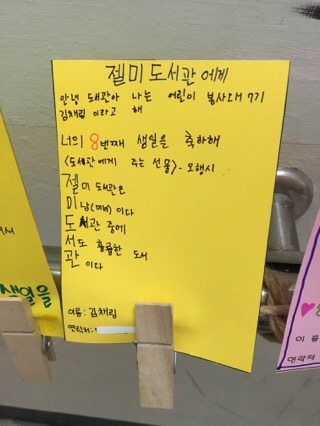 젤미 도서관에게
안녕 도서관아 나는 어린이 봉사대 7기
김채림 이라고 해
너의 8번째 생일을 축하해
<도서관에게 주는 선물> - 오행시
젤미 도서관은
미남(미녀) 이다
도서관 중에
서도 훌륭한 도서
관 이다
이름: 김채림
연락처:
생일을
이름
연락처